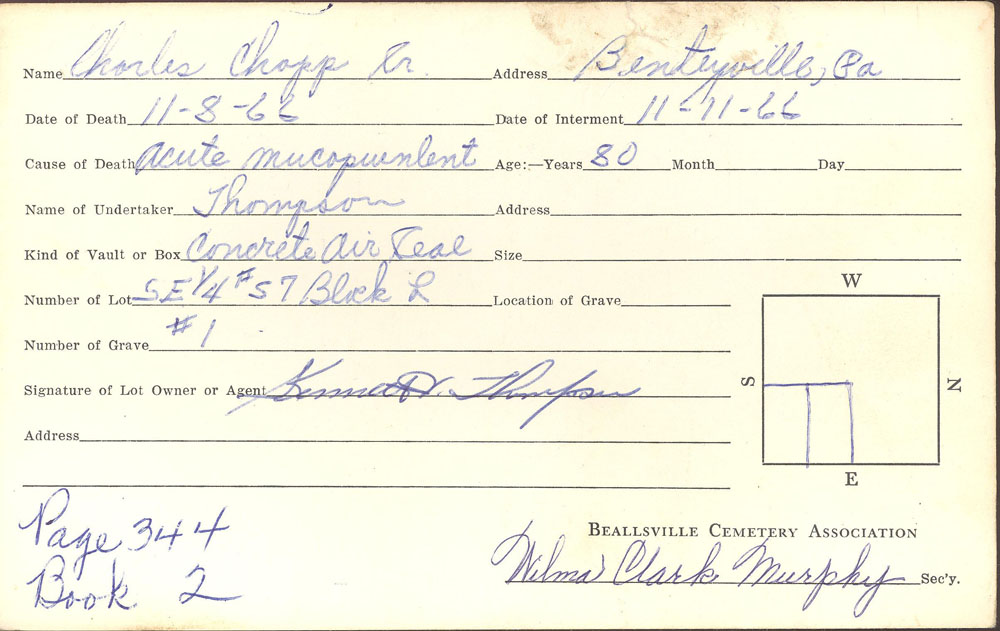 Name Charles Chopp Sr. Address Bentleyville, Pa
Date of Death 11-8-66 Date of Interment 11-11-66
Cause of Death Acute mucopurulent Age:—Years 80 Month Day
Name of Undertaker Thompson Address
Kind of Vault or Box Concrete Air Seal Size
Number of Lot SE 1/4 #57 Block L Location of Grave
Number of Grave #1
Signature of Lot Owner or Agent Kenneth V. Thompson
Address
W
S
N
E
Page 344
Book 2
BEALLSVILLE CEMETERY ASSOCIATION
Wilma Clark Murphy Sec'y.